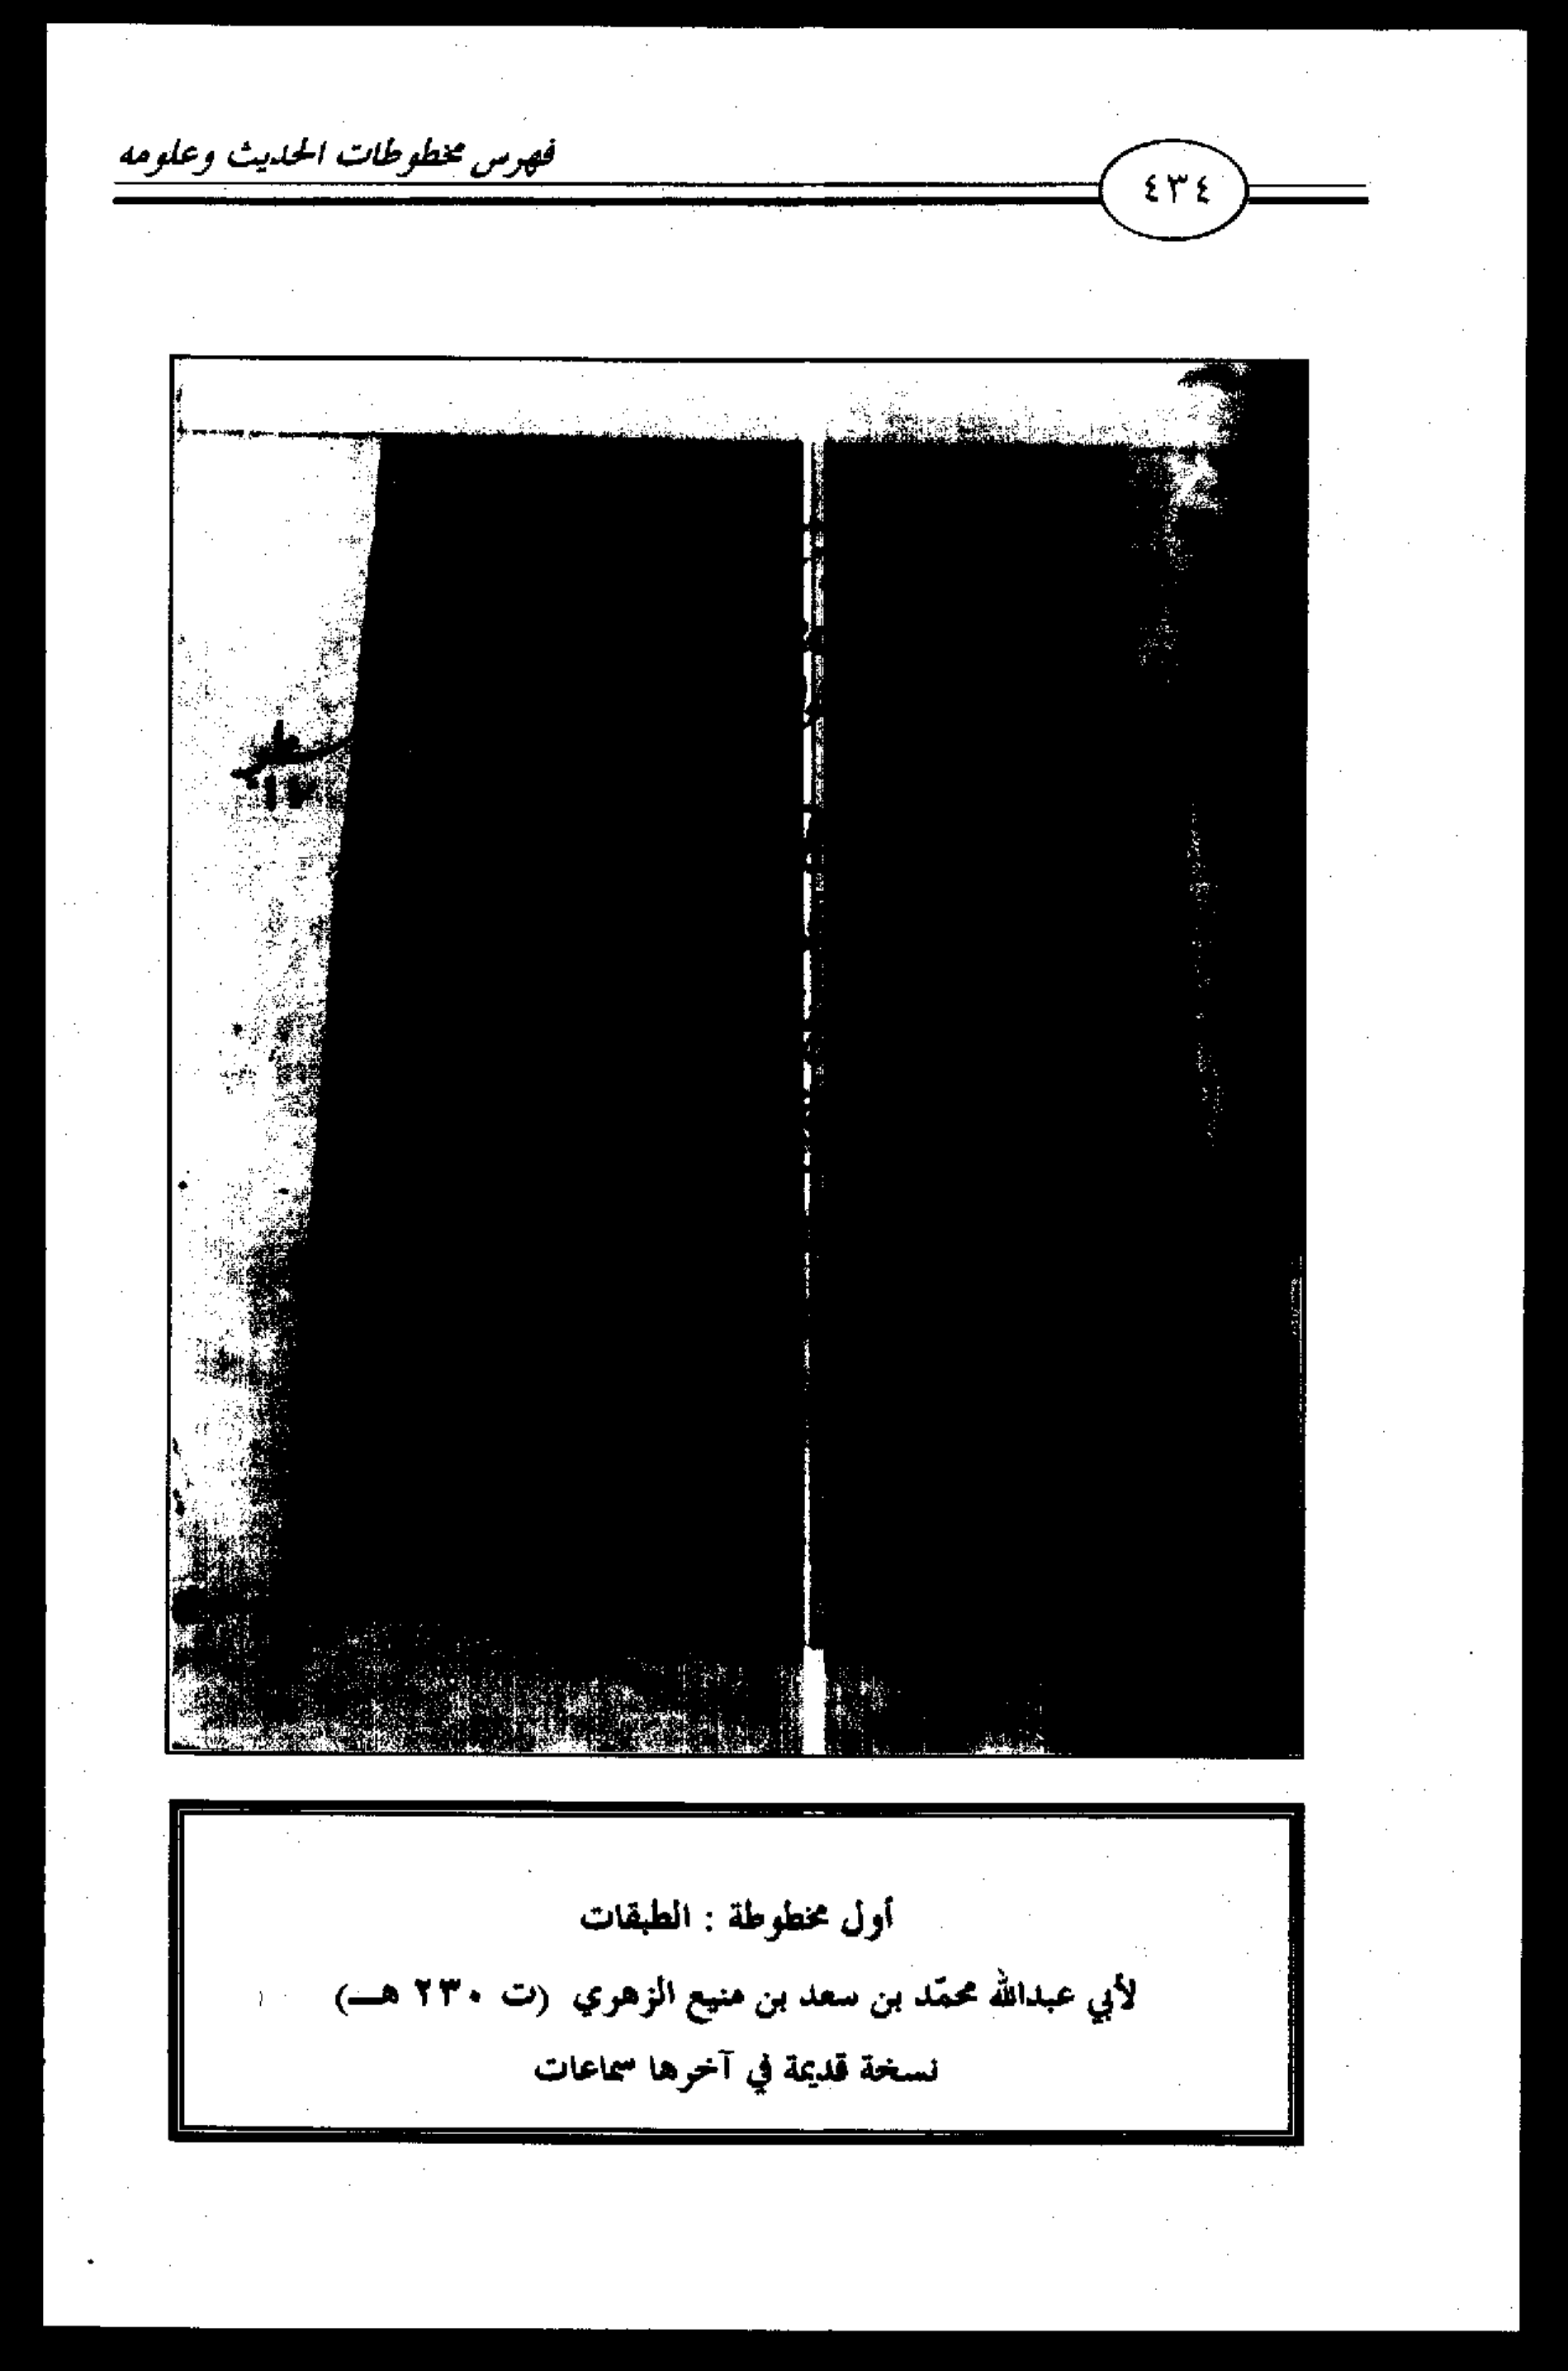 فهرس مخطوطات الحديث وعلومه
٤٣٤
أول مخطوطة : الطبقات
لأبي عبدالله محمّد بن سعد بن منيع الزهري (ت ٢٣٠ هــ)
نسخة قديمة في آخرها سماعات